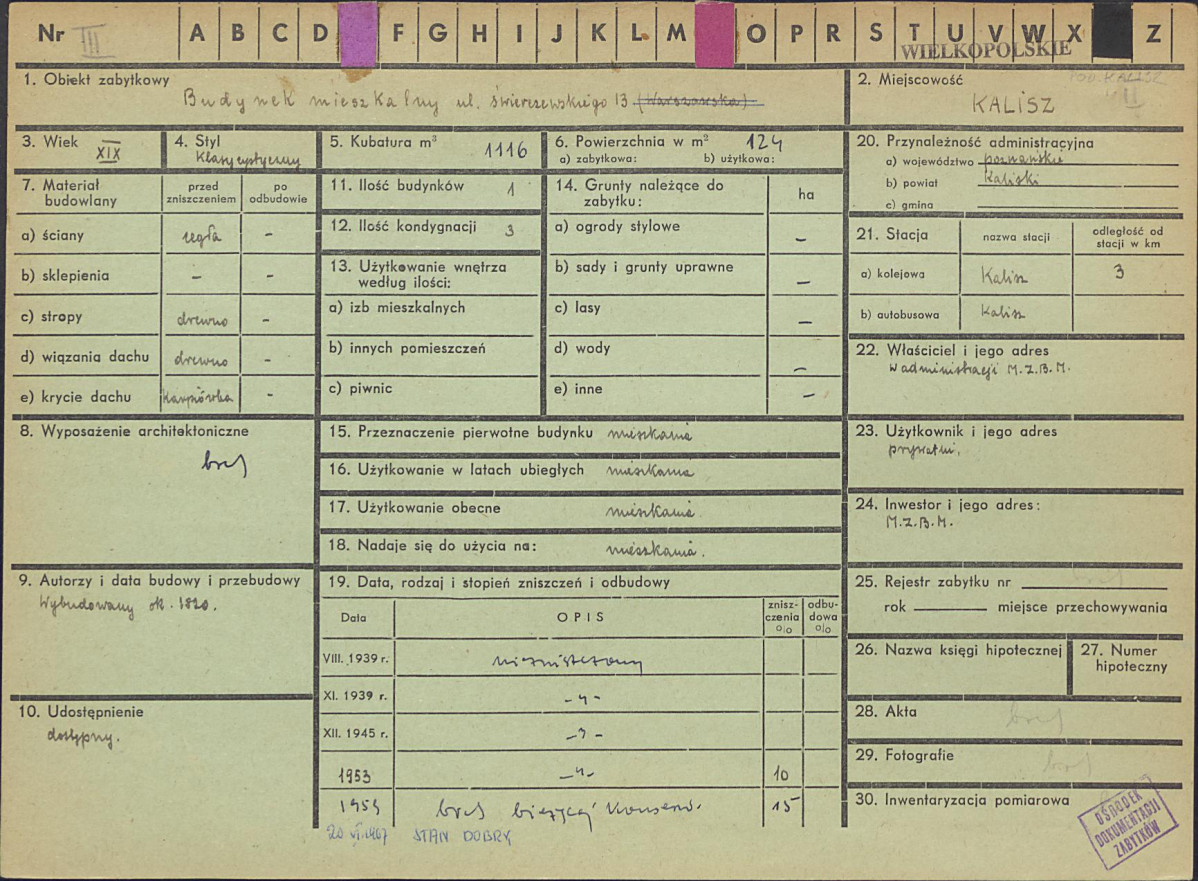 Nr III A B C D F G H I J K L M O P R S T U V W X Z
WIELKOPOLSKIE
1. Obiekt zabytkowy
Budynek mieszkalny ul. Świerczewskiego 13 (Warszawska)
2. Miejscowość
woj. KALISZ
II
KALISZ
3. Wiek
XIX
4. Styl
Klasycystyczny
5. Kubatura m³
1116
6. Powierzchnia w m² 124
a) zabytkowa: b) użytkowa:
20. Przynależność administracyjna
a) województwo poznańskie
b) powiat Kaliski
c) gmina
7. Materiał budowlany
przed zniszczeniem
po odbudowie
a) ściany cegła -
b) sklepienia -
c) stropy drewno -
d) wiązania dachu drewno -
e) krycie dachu Karpiówka -
11. Ilość budynków 1
12. Ilość kondygnacji 3
13. Użytkowanie wnętrza
według ilości:
a) izb mieszkalnych
b) innych pomieszczeń
c) piwnic
14. Grunty należące do
zabytku:
ha
a) ogrody stylowe -
b) sady i grunty uprawne -
c) lasy -
d) wody -
e) inne -
21. Stacja
nazwa stacji
odległość od
stacji w km
a) kolejowa Kalisz 3
b) autobusowa Kalisz
22. Właściciel i jego adres
w administracji M.Z.B.M.
8. Wyposażenie architektoniczne
brak
15. Przeznaczenie pierwotne budynku mieszkania
16. Użytkowanie w latach ubiegłych mieszkania
17. Użytkowanie obecne mieszkania
18. Nadaje się do użycia na: mieszkania.
23. Użytkownik i jego adres
prywatni.
24. Inwestor i jego adres:
M.Z.B.M.
9. Autorzy i data budowy i przebudowy
Wybudowany ok. 1820.
10. Udostępnienie
dostępny.
19. Data, rodzaj i stopień zniszczeń i odbudowy
Data
OPIS
znisz-
czenia
%
odbu-
dowa
%
VIII. 1939 r. niezniszczony
XI. 1939 r. -"-
XII. 1945 r. -"-
1953 -"- 10
1959 brak bieżącej konserw. 15
20 VI.1967 STAN DOBRY
25. Rejestr zabytku nr brak
rok miejsce przechowywania
26. Nazwa księgi hipotecznej
27. Numer
hipoteczny
28. Akta brak
29. Fotografie brak
30. Inwentaryzacja pomiarowa
OŚRODEK
DOKUMENTACJI
ZABYTKÓW